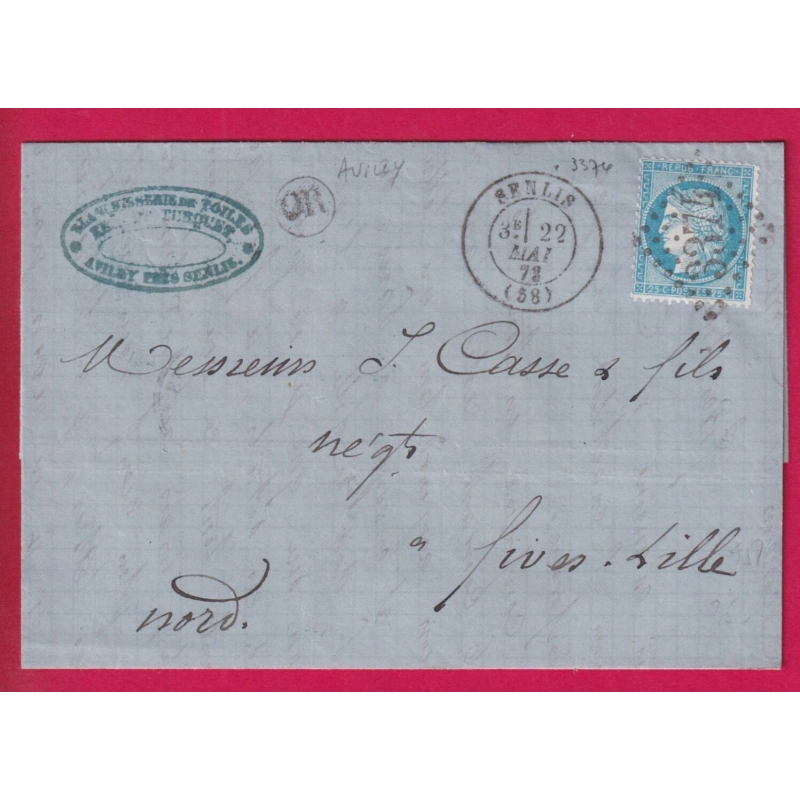 BLANCHISSERIE DE TOILES
TURQUET
AVILLY PRÈS SENLIS.
OR
AVILLY
3374
SENLIS
3E 22
MAI
73
(58)
REPUB. FRANC.
25 C. POSTES 25
3374
Messieurs J. Casse & fils
négts
a fives-Lille
nord.